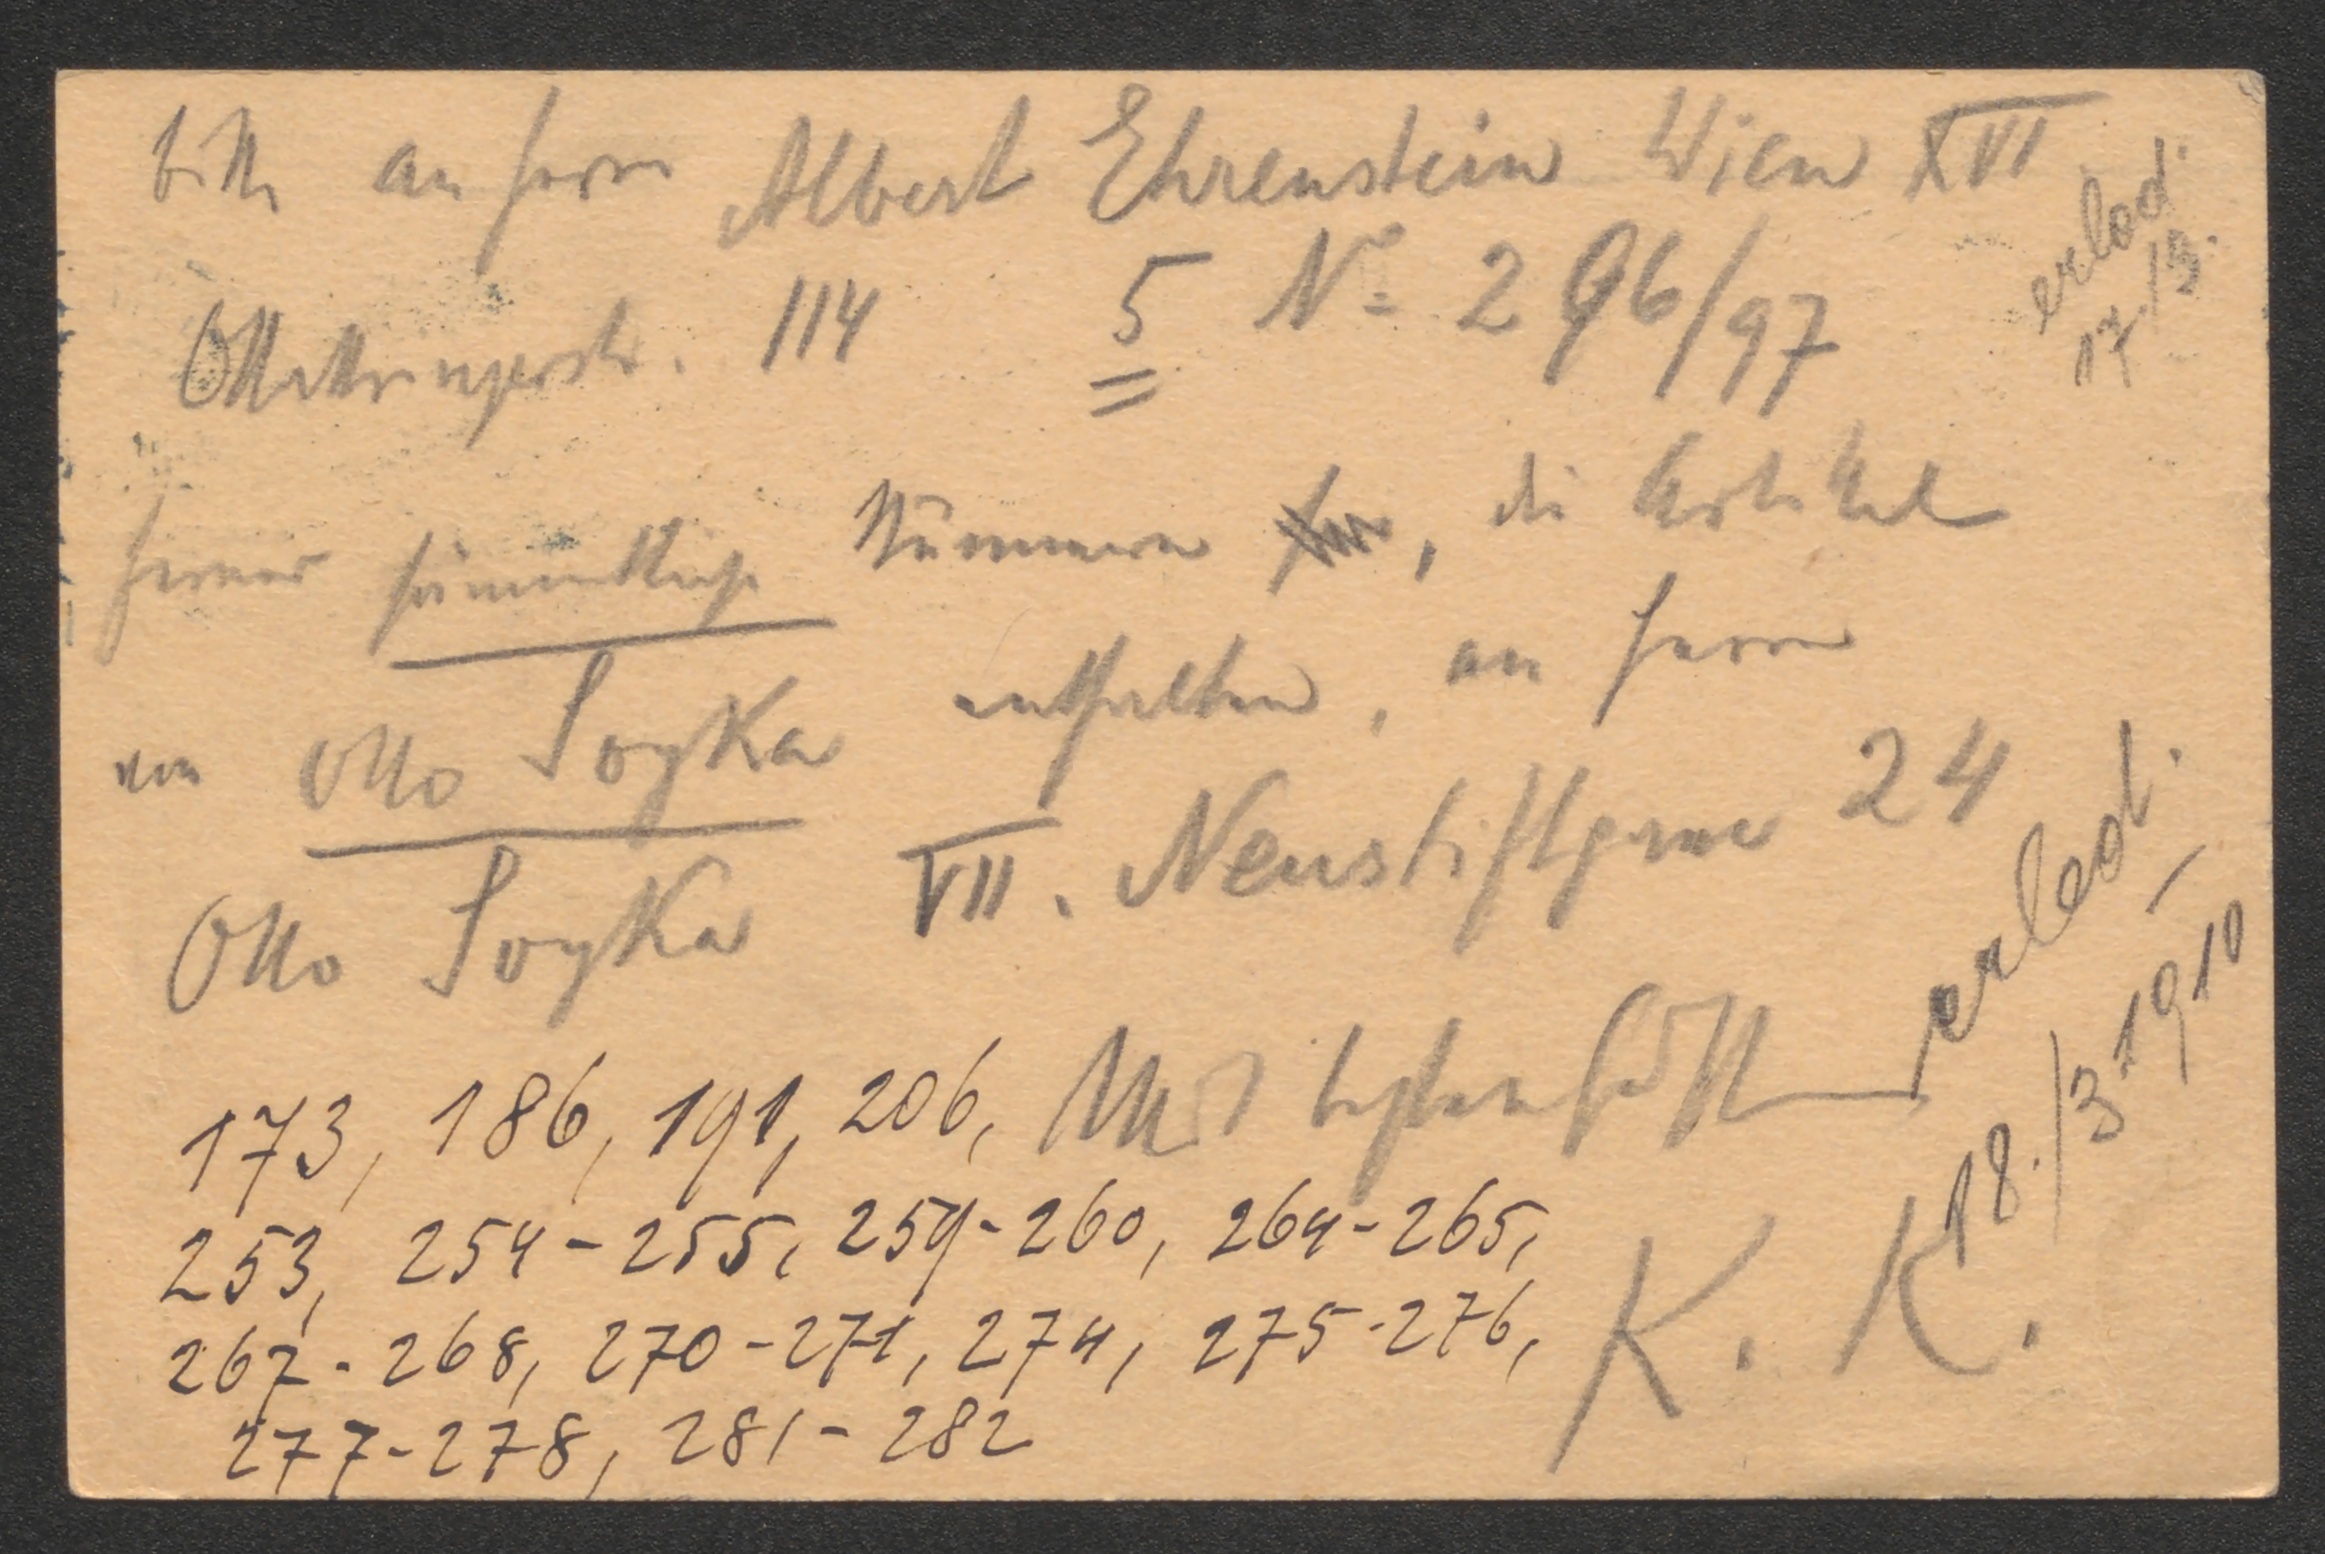 bitte an Herrn Albert Ehrenstein Wien XVI
Ottakringerstr. 114 5 No 296/97
erled.
17./3.
ferner sämmtliche Nummern, die Artikel
von Otto Soyka enthalten, an Herrn
Otto Soyka VII. Neustiftgasse 24
erled.
18./3 1910
173, 186, 191, 206,
253, 254-255, 259-260, 264-265,
267-268, 270-271, 274, 275-276,
277-278, 281-282
K. K.